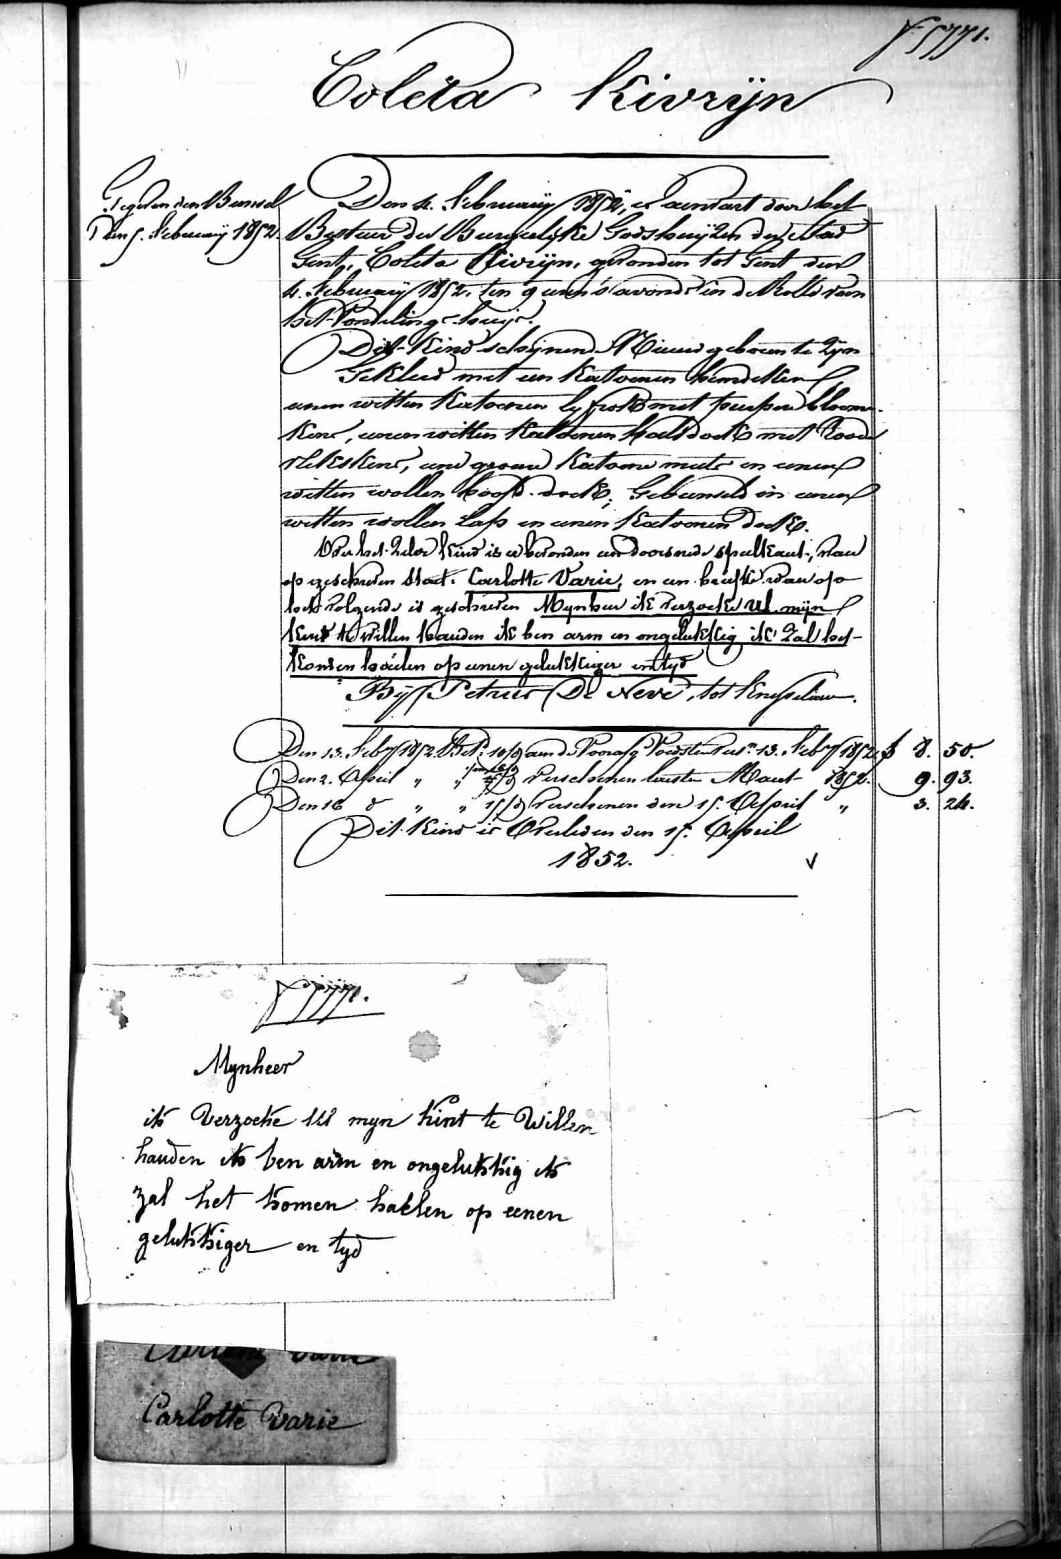 F° 5771.
Coleta Kivrijn
Gegeven den Bunsel
Den 5. February 1852.
Den 4. February 1852, is aenvaert door het
Bestuer der Burgerlijke Godshuijzen dezer Stad
Gent, Coleta Kivrijn, gevonden tot Gent den
4. February 1852. ten 9 uren 's avonds in de Rolle van
het Vondelings-huijs.
Dit kind schijnend Nieuw geboren te zijn
Gekleed met een katoenen hemdeken
eenen witten katoenen lyfrok met purpere bloem-
kens, eenen witten katoenen halsdoek met Roode
vlekskens, eene grouwe katoene muts en eenen
witten wollen hoofd-doek; Gebunseld in eenen
witten wollen Laps en eenen katoenen doek.
Op het zelve kind is er bevonden een doorsnede speelkaert, waer
op geschreven staet: Carlotte Varie, en een briefke waer op
het volgende is geschreven Mynheer ik verzoeke Ul mijn
kint te willen houden ik ben arm en ongelukkig ik zal het
komen haelen op eenen gelukkiger en tyd
Bij Petrus De Neve, tot
Den 13. Feb 1852 Bet. 10/ aen de Voedster 13. Feb 1852. f 8. 50.
Den 2. April " " verschenen laesten Maert 1852. 9. 93.
Den 16 d° " " 15/ verschenen den 15. April " 3. 24.
Dit kind is Overleden den 15. April
1852.
F° 5771.
Mynheer
ik verzoeke Ul myn kint te willen
hauden ik ben arm en ongelukkig ik
zal het komen haelen op eenen
gelukkiger en tyd
Carlotte Varie
Carlotte Varie